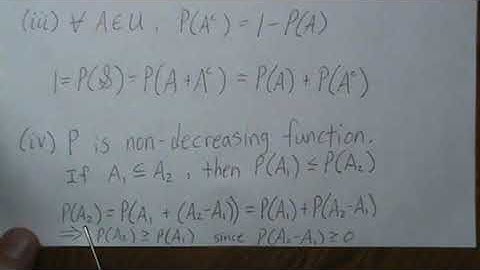 (iii) ∀ A∈U, P(Aᶜ) = 1 - P(A)
1 = P(S) = P(A + Aᶜ) = P(A) + P(Aᶜ)
(iv) P is non-decreasing function.
If A₁ ⊆ A₂, then P(A₁) ≤ P(A₂)
P(A₂) = P(A₁ + (A₂-A₁)) = P(A₁) + P(A₂-A₁)
⟹ P(A₂) ≥ P(A₁) since P(A₂-A₁) ≥ 0